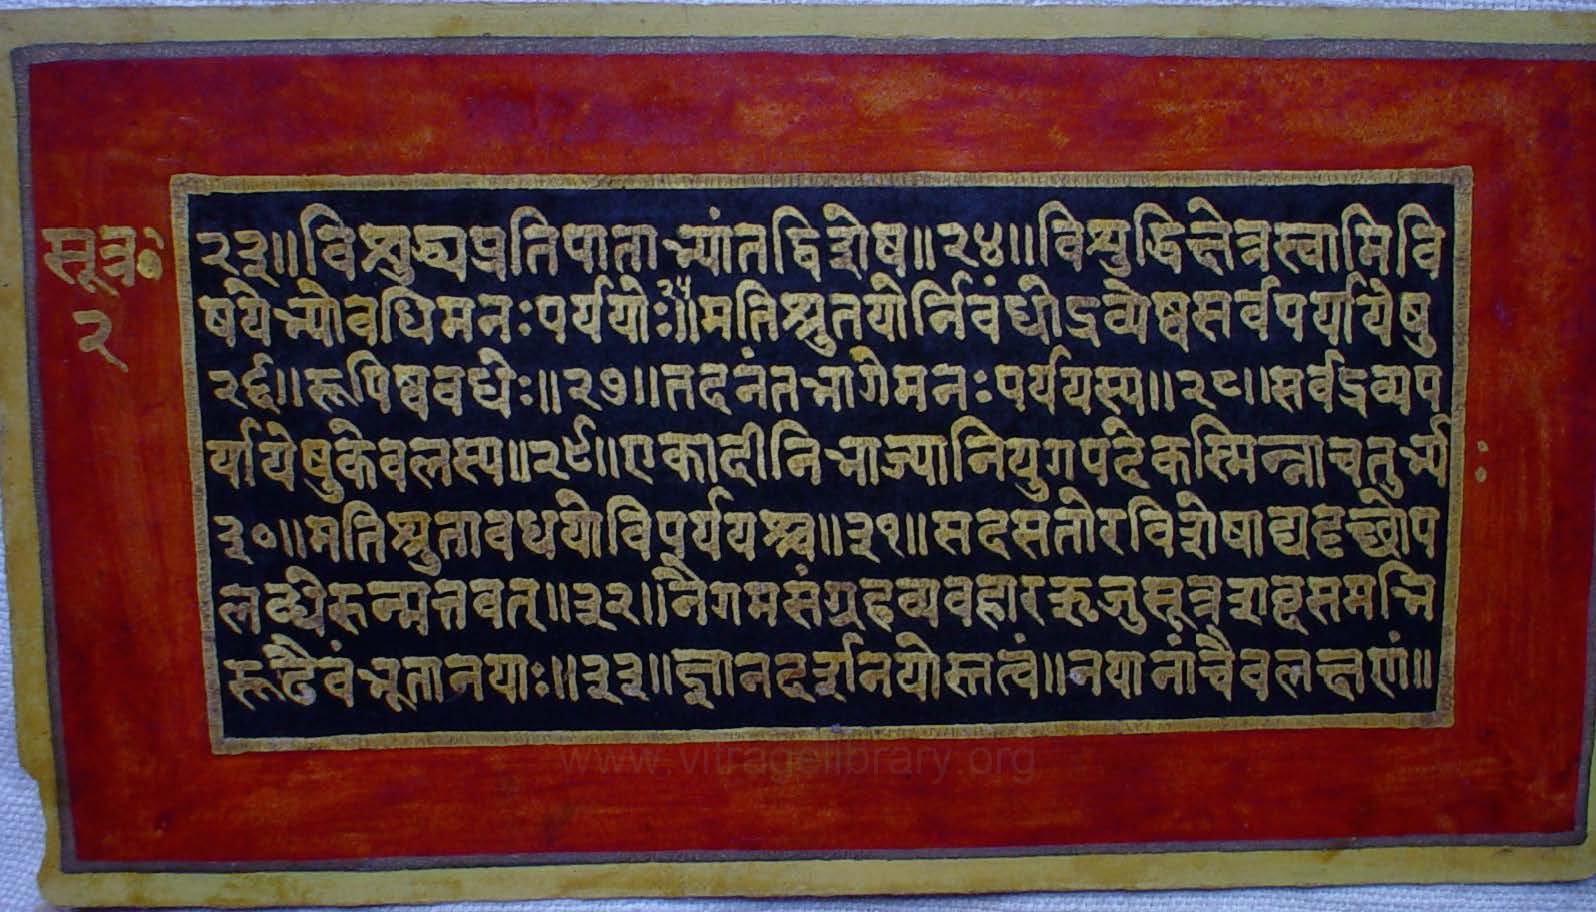 सूत्रः
२
२३॥विश्रुद्ध्यप्रतिपाताभ्यांतद्विशेष॥२४॥विश्रुद्धिक्षेत्रस्वामिवि
षयेभ्योवधिमनःपर्यययोः॥२५मतिश्रुतयोर्निवंधोद्रव्येष्वसर्वपर्यायेषु
२६॥रूपिष्ववधेः॥२७॥तदनंतभागेमनःपर्ययस्य॥२८॥सर्वद्रव्यप
र्यायेषुकेवलस्य॥२९॥एकादीनिभाज्यानियुगपदेकस्मिन्नाचतुर्भ्य
३०॥मतिश्रुतावधयोविपर्ययश्च॥३१॥सदसतोरविशेषाद्यदृच्छोप
लब्धेरुन्मत्तवत्॥३२॥नैगमसंग्रहव्यवहारऋजुसूत्रशब्दसमभि
रूढैवंभूतानयाः॥३३॥ज्ञानदर्शनयोस्तत्वं॥नयानांचैवलक्षणं॥
www.vitragelibrary.org